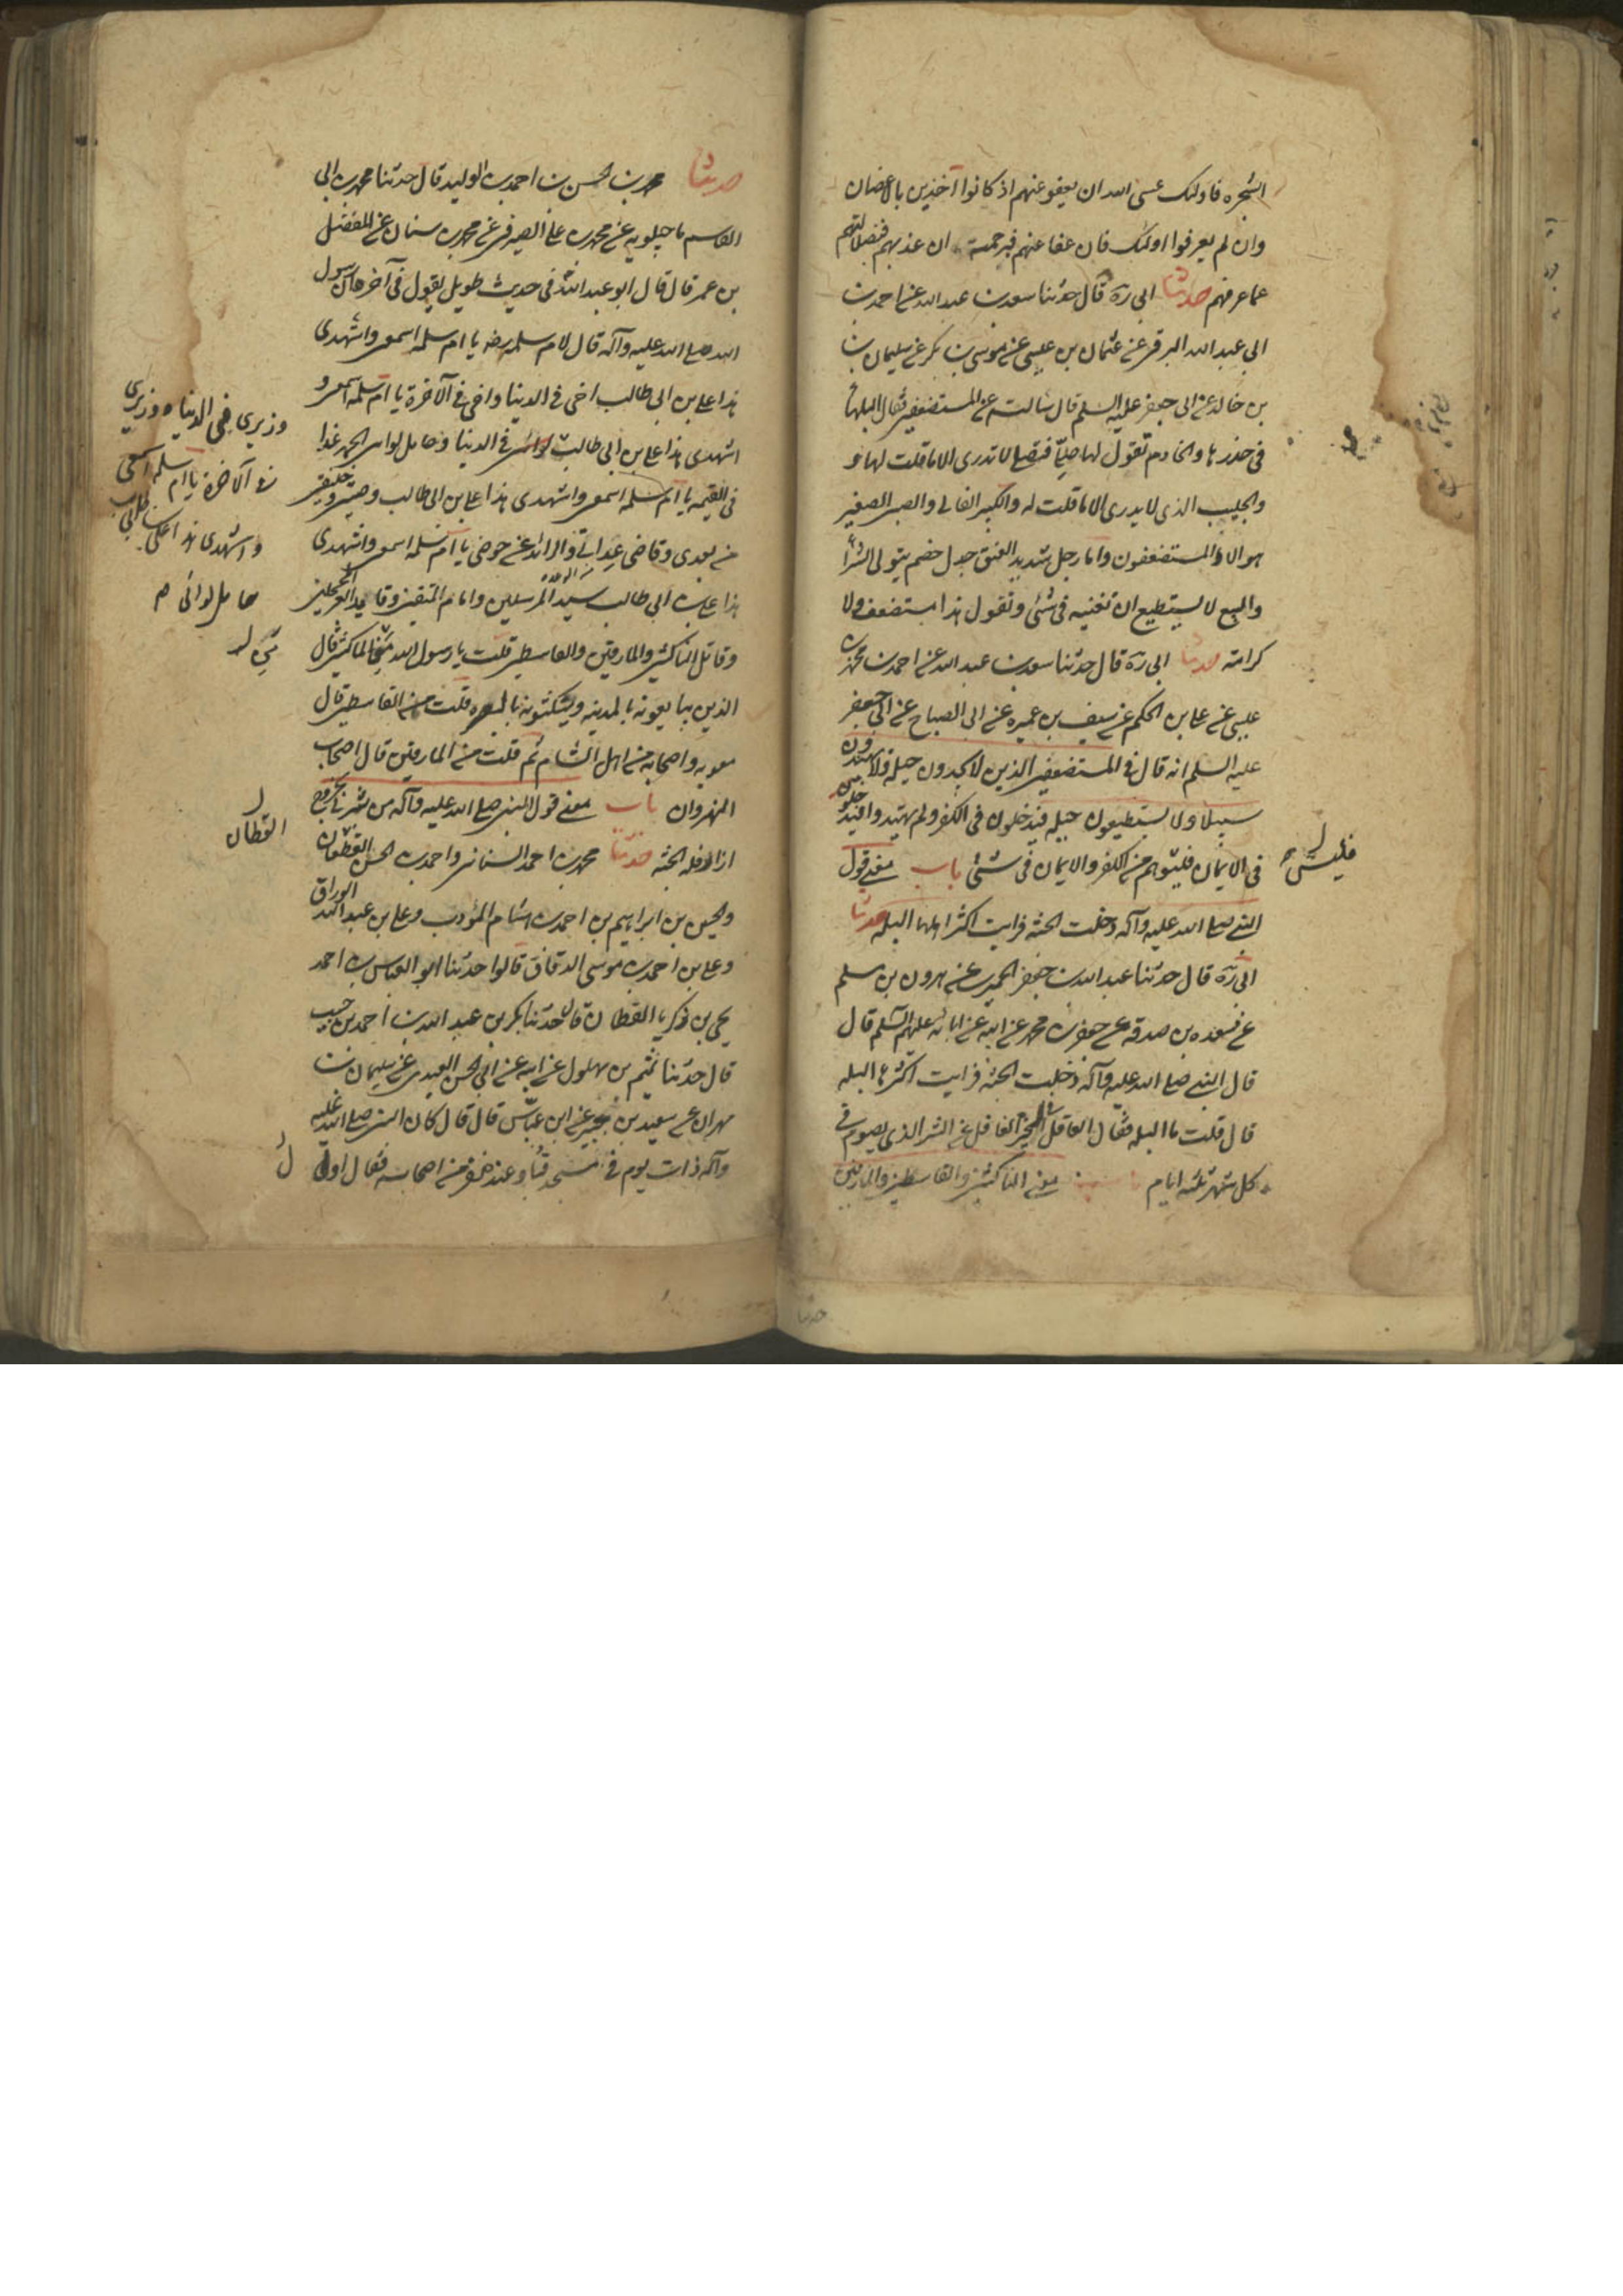 الشجره فاولئك عسى الله ان يعفو عنهم اذ كانوا آخذين بالاغصان
وان لم يعرفوا اولئك فان عفا عنهم فبرحمته وان عذبهم فبضلالتهم
عما عرفهم حدثنا ابى ره قال حدثنا سعد بن عبد الله عن احمد بن
ابى عبد الله البرقى عن عثمان بن عيسى عن موسى بن بكر عن سليمان بن
بن خالد عن ابى جعفر عليه السلم قال سالته عن المستضعفين فقال البلهاء
فى خدرها والخادم تقول لها صلى فتصلى لا تدرى الا ما قلت لها و
والجليب الذى لا يدرى الا ما قلت له والكبير الفانى والصبى الصغير
هولاء المستضعفون واما رجل شديد العنق جدل خصم يتولى الشراء
والبيع لا يستطيع ان تغبنه فى شئ وتقول هذا مستضعف ولا
كرامة حدثنا ابى ره قال حدثنا سعد بن عبد الله عن احمد بن محمد بن
عيسى عن على بن الحكم عن سيف بن عميره عن ابى الصباح عن ابى جعفر
عليه السلم انه قال فى المستضعفين الذين لا يجدون حيلة ولا يهتدون
سبيلا ولا يستطيعون حيله فيدخلون فى الكفر ولم يهتدوا فيدخلون
فى الايمان فليسوا هم من الكفر والايمان فى شئ باب معنى قول
فليس
النبى صلى الله عليه وآله دخلت الجنة فرايت اكثر اهلها البله حدثنا
ابى ره قال حدثنا عبد الله بن جعفر الحميرى عن هرون بن مسلم
عن مسعده بن صدقه عن جعفر بن محمد عن ابيه عن ابائه عليهم السلم قال
قال النبى صلى الله عليه وآله دخلت الجنة فرايت اكثرها البله
قال قلت ما البله فقال العاقل فى الخير الغافل عن الشر الذى يصوم فى
كل شهر ثلثه ايام باب معنى الناكثين والقاسطين والمارقين
حدثنا
حدثنا محمد بن الحسن بن احمد بن الوليد قال حدثنا محمد بن ابى
القاسم ماجيلويه عن محمد بن على الصيرفى عن محمد بن سنان عن المفضل
بن عمر قال قال ابو عبد الله فى حديث طويل يقول فى آخره ان رسول
الله صلى الله عليه وآله قال لام سلمه رضه يا ام سلمه اسمعى واشهدى
هذا على بن ابى طالب اخى فى الدنيا واخى فى الآخرة يا ام سلمه اسمعى و
اشهدى هذا على بن ابى طالب لوائى فى الدنيا وحامل لواء الحمد غدا
فى القيمه يا ام سلمه اسمعى واشهدى هذا على بن ابى طالب وصيى وخليفتى
من بعدى وقاضى عداتى والذائد عن حوضى يا ام سلمه اسمعى واشهدى
هذا على بن ابى طالب سيد المرسلين وامام المتقين وقايد الغر المحجلين
وقاتل الناكثين والمارقين والقاسطين قلت يا رسول الله من الناكثين قال
الذين يبايعونه بالمدينه وينكثونه بالبصره قلت من القاسطين قال
معويه واصحابه من اهل الشام ثم قلت من المارقين قال اصحاب
النهروان باب معنى قول النبى صلى الله عليه وآله من بشرنى بخروج
اذار فله الجنة حدثنا محمد بن احمد السنانى واحمد بن الحسن القطان
والحسين بن ابراهيم بن احمد بن هشام المؤدب وعلى بن عبد الله الوراق
وعلى بن احمد بن موسى الدقاق قالوا حدثنا ابو العباس بن احمد
يحيى بن ذكريا القطان قال حدثنا بكر بن عبد الله بن احمد بن حبيب
قال حدثنا تميم بن بهلول عن ابيه عن ابى الحسن العبدى عن سليمان بن
مهران عن سعيد بن جبير عن ابن عباس قال قال كان النبى صلى الله عليه
وآله ذات يوم فى مسجد قبا وعنده نفر من اصحابه فقال اول
وزيرى فى الدنيا ووزيرى
فى الآخرة يا ام سلمه اسمعى
واشهدى هذا على بن ابى طالب
حامل لوائى م
القطان